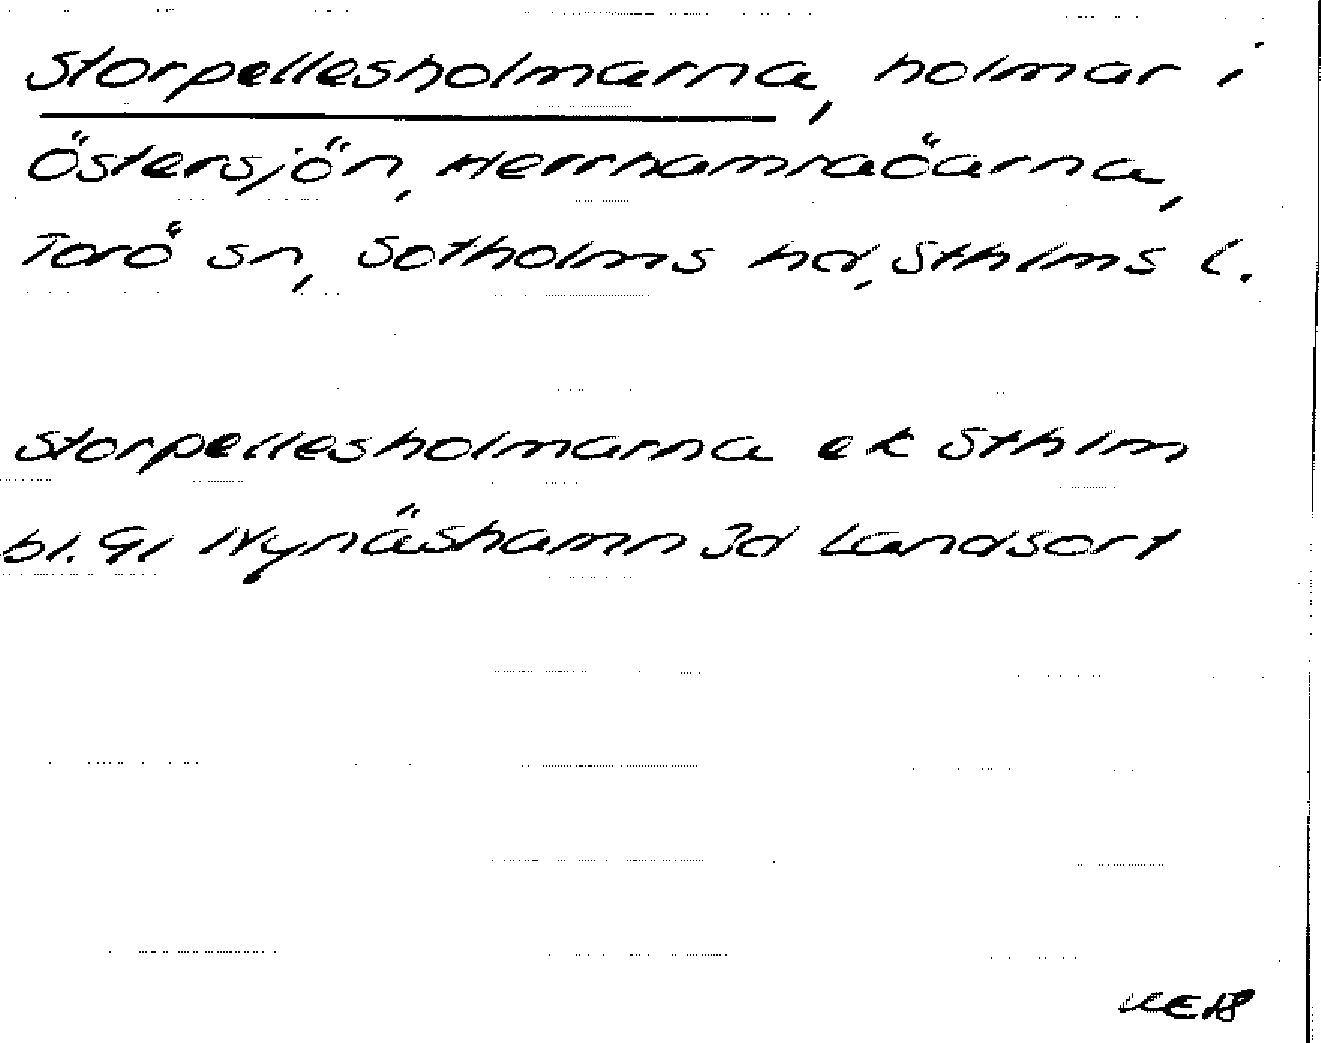 Storpellesholmarna, holmar i
Östersjön, Herrhamraöarna,
Torö sn, Sotholms hd, Sthlms l.
Storpellesholmarna ek Sthlm
bl. 91 Nynäshamn 3d Landsort